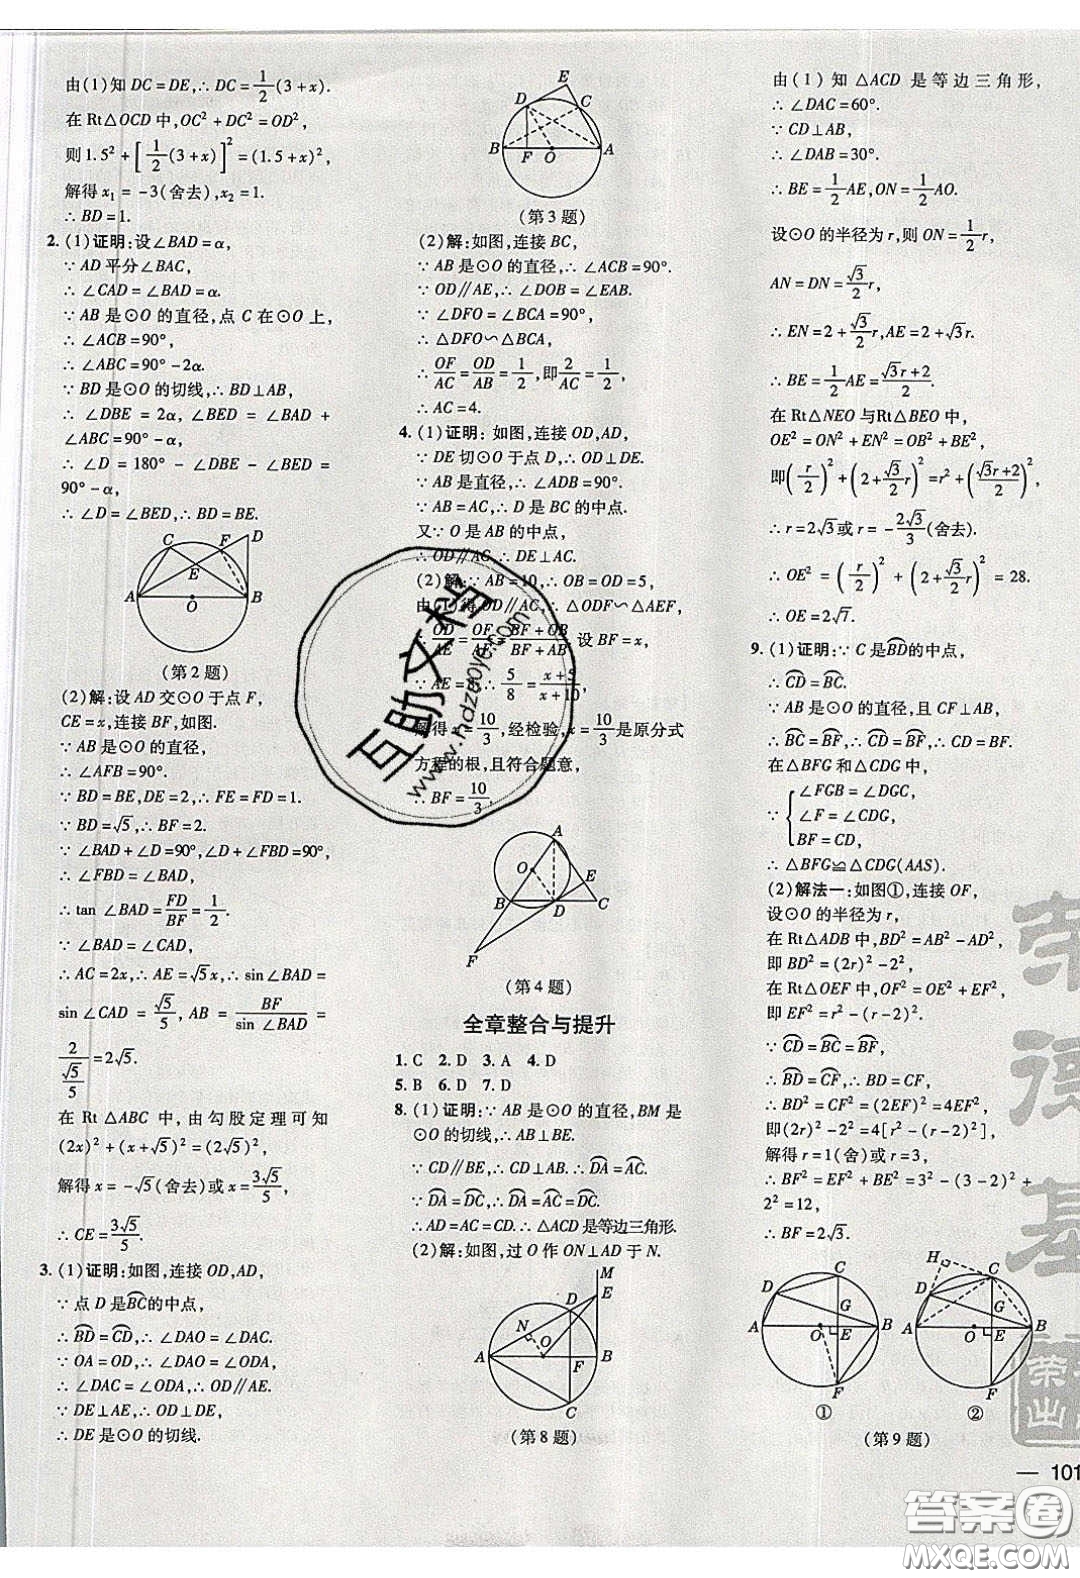 由(1)知 DC=DE,∴ DC=1/2(3+x).
在 Rt△OCD 中,OC²+DC²=OD²,
则 1.5²+[1/2(3+x)]²=(1.5+x)²,
解得 x₁=-3(舍去),x₂=1.
∴ BD=1.
2. (1)证明:设∠BAD=α,
∵ AD 平分∠BAC,
∴ ∠CAD=∠BAD=α.
∵ AB 是⊙O 的直径,点 C 在⊙O 上,
∴ ∠ACB=90°,
∴ ∠ABC=90°-2α.
∵ BD 是⊙O 的切线,∴ BD⊥AB,
∴ ∠DBE=2α,∠BED=∠BAD+
∠ABC=90°-α,
∴ ∠D=180°-∠DBE-∠BED=
90°-α,
∴ ∠D=∠BED,∴ BD=BE.
C F D E A O B
(第 2 题)
(2)解:设 AD 交⊙O 于点 F,
CE=x,连接 BF,如图.
∵ AB 是⊙O 的直径,
∴ ∠AFB=90°.
∵ BD=BE,DE=2,∴ FE=FD=1.
∵ BD=√5,∴ BF=2.
∵ ∠BAD+∠D=90°,∠D+∠FBD=90°,
∴ ∠FBD=∠BAD,
∴ tan ∠BAD=FD/BF=1/2.
∵ ∠BAD=∠CAD,
∴ AC=2x,∴ AE=√5x,∴ sin∠BAD=
sin ∠CAD=√5/5, AB=BF/sin ∠BAD=
2/(√5/5)=2√5.
在 Rt △ABC 中, 由勾股定理可知
(2x)²+(x+√5)²=(2√5)²,
解得 x=-√5(舍去)或 x=3√5/5,
∴ CE=3√5/5.
3. (1)证明:如图,连接 OD,AD,
∵ 点 D 是BC的中点,
∴ BD=CD,∴ ∠DAO=∠DAC.
∵ OA=OD,∴ ∠DAO=∠ODA,
∴ ∠DAC=∠ODA,∴ OD∥AE.
∵ DE⊥AE,∴ OD⊥DE,
∴ DE 是⊙O 的切线.
E D C B F O A
(第 3 题)
(2)解:如图,连接 BC,
∵ AB 是⊙O 的直径,∴ ∠ACB=90°.
∵ OD∥AE,∴ ∠DOB=∠EAB.
∵ ∠DFO=∠BCA=90°,
∴ △DFO∽△BCA,
∴ OF/AC=OD/AB=1/2,即2/AC=1/2,
∴ AC=4.
4. (1)证明: 如图,连接 OD,AD,
∵ DE 切⊙O 于点 D,∴ OD⊥DE.
∵ AB 是直径,∴ ∠ADB=90°.
∵ AB=AC,∴ D 是 BC 的中点.
又∵ O 是 AB 的中点,
∴ OD∥AC,∴ DE⊥AC.
(2)解:∵ AB=10,∴ OB=OD=5,
由(1)得 OD∥AC,∴ △ODF∽△AEF,
∴ OD/AE=OF/AF=(BF+OB)/(BF+AB). 设 BF=x,
∵ AE=8,∴ 5/8=(x+5)/(x+10),
解得 x=10/3,经检验,x=10/3是原分式
方程的根,且符合题意,
∴ BF=10/3.
A O E B D C F
(第 4 题)
全章整合与提升
1. C 2. D 3. A 4. D
5. B 6. D 7. D
8. (1)证明:∵ AB 是⊙O 的直径,BM 是
⊙O 的切线,∴ AB⊥BE.
∵ CD∥BE,∴ CD⊥AB,∴ DA=AC.
∵ DA=DC,∴ DA=AC=DC.
∴ AD=AC=CD.∴ △ACD 是等边三角形.
(2)解:如图,过 O 作 ON⊥AD 于 N.
M E D N O A F B C
(第 8 题)
由(1) 知 △ACD 是等边三角形,
∴ ∠DAC=60°.
∵ CD⊥AB,
∴ ∠DAB=30°.
∴ BE=1/2AE,ON=1/2AO.
设⊙O 的半径为 r,则 ON=1/2r,
AN=DN=√3/2r,
∴ EN=2+√3/2r,AE=2+√3r,
∴ BE=1/2AE=(√3r+2)/2.
在 Rt△NEO 与Rt△BEO 中,
OE²=ON²+EN²=OB²+BE²,
即(r/2)²+(2+√3/2r)²=r²+((√3r+2)/2)²
∴ r=2√3或 r=-2√3/3(舍去).
∴ OE²=(r/2)²+(2+√3/2r)²=28.
∴ OE=2√7.
9. (1)证明:∵ C 是BD的中点,
∴ CD=BC.
∵ AB 是⊙O 的直径,且 CF⊥AB,
∴ BC=BF,∴ CD=BF,∴ CD=BF.
在△BFG 和△CDG 中,
∵ {∠FGB=∠DGC,
∠F=∠CDG,
BF=CD,
∴ △BFG≌△CDG(AAS).
(2)解法一:如图①,连接 OF,
设⊙O 的半径为 r,
在 Rt△ADB 中,BD²=AB²-AD²,
即 BD²=(2r)²-2²,
在 Rt△OEF 中,OF²=OE²+EF²,
即 EF²=r²-(r-2)².
∵ CD=BC=BF,
∴ BD=CF,∴ BD=CF,
∴ BD²=CF²=(2EF)²=4EF²,
即(2r)²-2²=4[r²-(r-2)²],
解得 r=1(舍)或 r=3,
∴ BF²=EF²+BE²=3²-(3-2)²+
2²=12,
∴ BF=2√3.
C D G A O E B F ①
H C D G A O E B F ②
(第 9 题)
— 101
互助文档
www.hdzuoye.com
荣
德
基
荣
出
答案圈
MXQE.COM